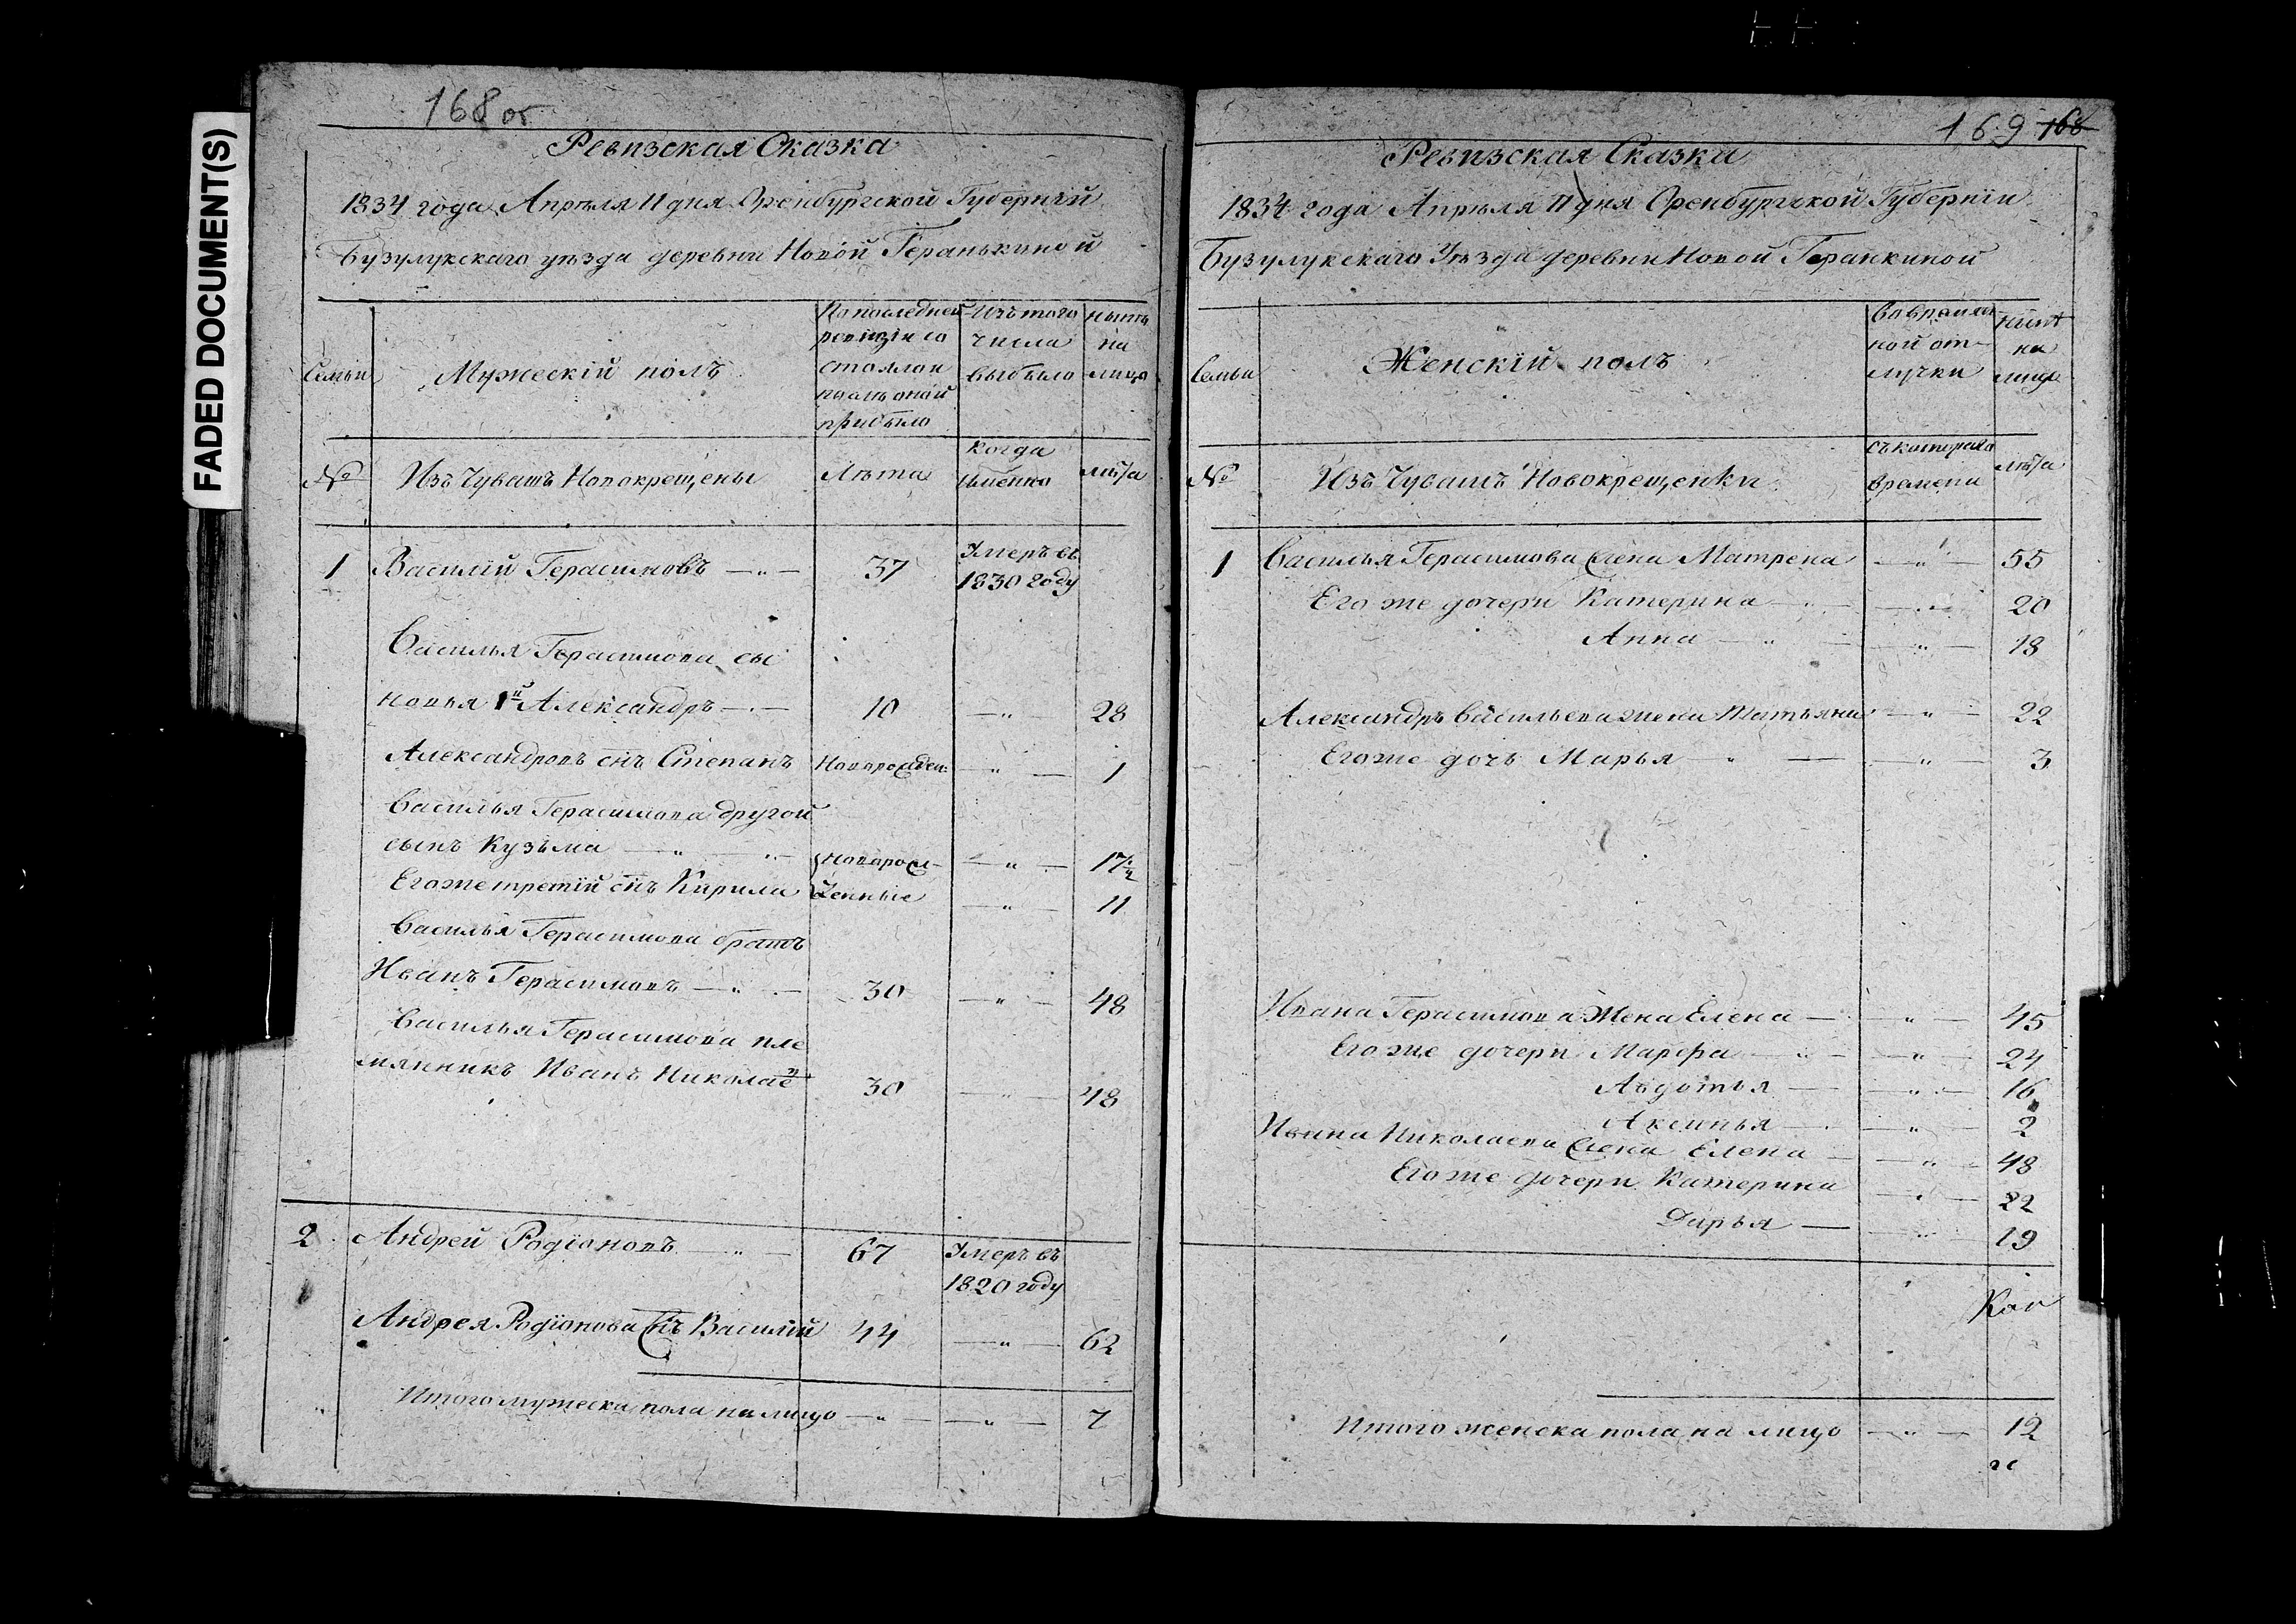 FADED DOCUMENT(S)
168 об
Ревизская Сказка
1834 года Апреля 11 дня Оренбургской Губернiй
Бузулукскаго уѣзда деревни Новой Геранькиной
Семьи
Мужескiй полъ
По последней
ревизiи со
стояло и
после оной
прибыло
Изъ того
числа
выбыло
ныне
на
лицо
№
Изъ Чувашъ Новокрещены
Лѣта
когда
именно
лѣта
1 Василiй Герасимовъ — 〃 — 37 Умеръ въ
1830 году
Василья Герасимова сы
новья 1й Александръ — 〃 — 10 — 〃 — 28
Александровъ снъ Степанъ Новорожден: — 〃 — 1
Василья Герасимова другой
сынъ Кузьма — 〃 — 〃 — новорож- — 〃 — 17½
Егоже третiй снъ Кирила денные — 〃 — 11
Василья Герасимова братъ
Иванъ Герасимовъ — 〃 — 30 — 〃 — 48
Василья Герасимова пле
мянникъ Иванъ Николаевъ 30 — 〃 — 48
2 Андрей Родiоновъ — 〃 — 67 Умеръ въ
1820 году
Андрея Родiонова снъ Василiй 44 — 〃 — 62
Итого мужеска пола на лицо — 〃 — — 〃 — 7
169 168
Ревизская Сказка
1834 года Апреля 11 дня Оренбургской Губернiи
Бузулукскаго Уѣзда деревни Новой Геранкиной
Семьи
Женскiй полъ
Во времян
ной от-
лучки
ныне
на
лицо
№
Изъ Чувашъ Новокрещенки
съ котораго
времени
лѣта
1 Василья Герасимова жена Матрена — 〃 — 55
Его же дочери Катерина — 〃 — — 〃 — 20
Анна — 〃 — — 〃 — 18
Александръ Васильева жена Татьяна — 〃 — 22
Егоже дочь Марья — 〃 — — 〃 — 3
Ивана Герасимова Жена Елена — — 〃 — 45
Его же дочери Марфа — 〃 — — 〃 — 24
Авдотья — — 〃 — 16
Аксинья — — 〃 — 2
Ивана Николаева жена Елена — — 〃 — 48
Его же дочери Катерина — 〃 — 22
Дарья — — 〃 — 19
Итого женска пола на лицо — 〃 — 12